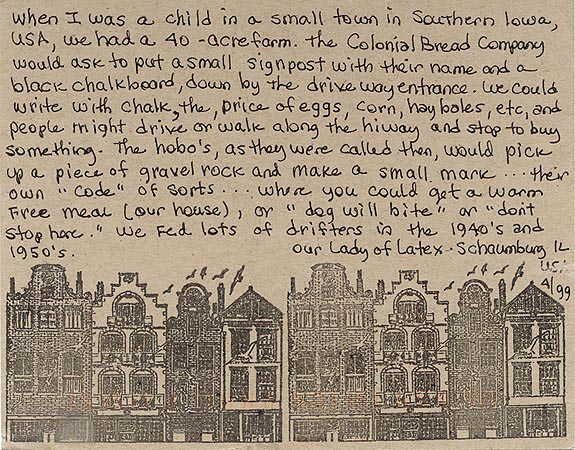 when I was a child in a small town in Southern Iowa,
USA, we had a 40-acre farm. the Colonial Bread Company
would ask to put a small signpost with their name and a
black chalkboard, down by the driveway entrance. we could
write with chalk, the, price of eggs, corn, hay bales, etc, and
people might drive or walk along the hiway and stop to buy
something. The hobo's, as they were called then, would pick
up a piece of gravel rock and make a small mark... their
own "code" of sorts... where you could get a warm
free meal (our house), or "dog will bite" or "don't
stop here." we fed lots of drifters in the 1940's and
1950's.
our Lady of Latex - Schaumburg IL
USA
4/99